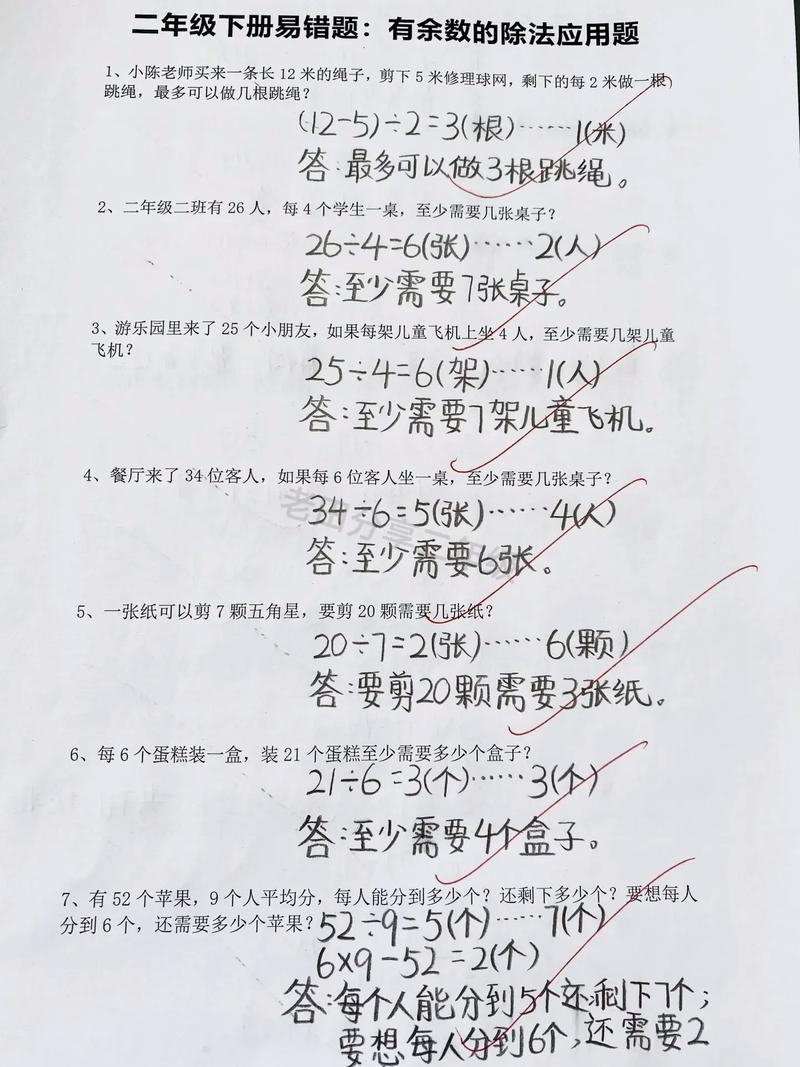 二年级下册易错题：有余数的除法应用题
1、小陈老师买来一条长 12 米的绳子，剪下 5 米修理球网，剩下的每 2 米做一根
跳绳，最多可以做几根跳绳？
(12-5)÷2=3(根)……1(米)
答:最多可以做3根跳绳。
2、二年级二班有 26 人，每 4 个学生一桌，至少需要几张桌子？
26÷4=6(张)……2(人)
答:至少需要7张桌子。
3、游乐园里来了 25 个小朋友，如果每架儿童飞机上坐 4 人，至少需要几架儿童
飞机？
25÷4=6(架)……1(人)
答:至少需要7架儿童飞机。
4、餐厅来了 34 位客人，如果每 6 位客人坐一桌，至少需要几张桌子？
老田分享二年级
34÷6=5(张)……4(人)
答:至少需要6张。
5、一张纸可以剪 7 颗五角星，要剪 20 颗需要几张纸？
20÷7=2(张)……6(颗)
答:要剪20颗需要3张纸。
6、每 6 个蛋糕装一盒，装 21 个蛋糕至少需要多少个盒子？
21÷6=3(个)……3(个)
答:至少需要4个盒子。
7、有 52 个苹果，9 个人平均分，每人能分到多少个？还剩下多少个？要想每人
分到 6 个，还需要多少个苹果？
52÷9=5(个)……7(个)
6×9-52=2(个)
答:每个人能分到5个还剩下7个;
要想每人分到6个,还需要2